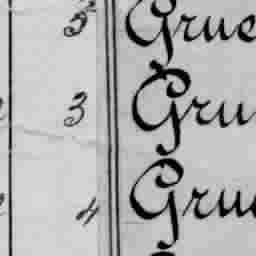 5 Grue
3 Gru
4 Grue